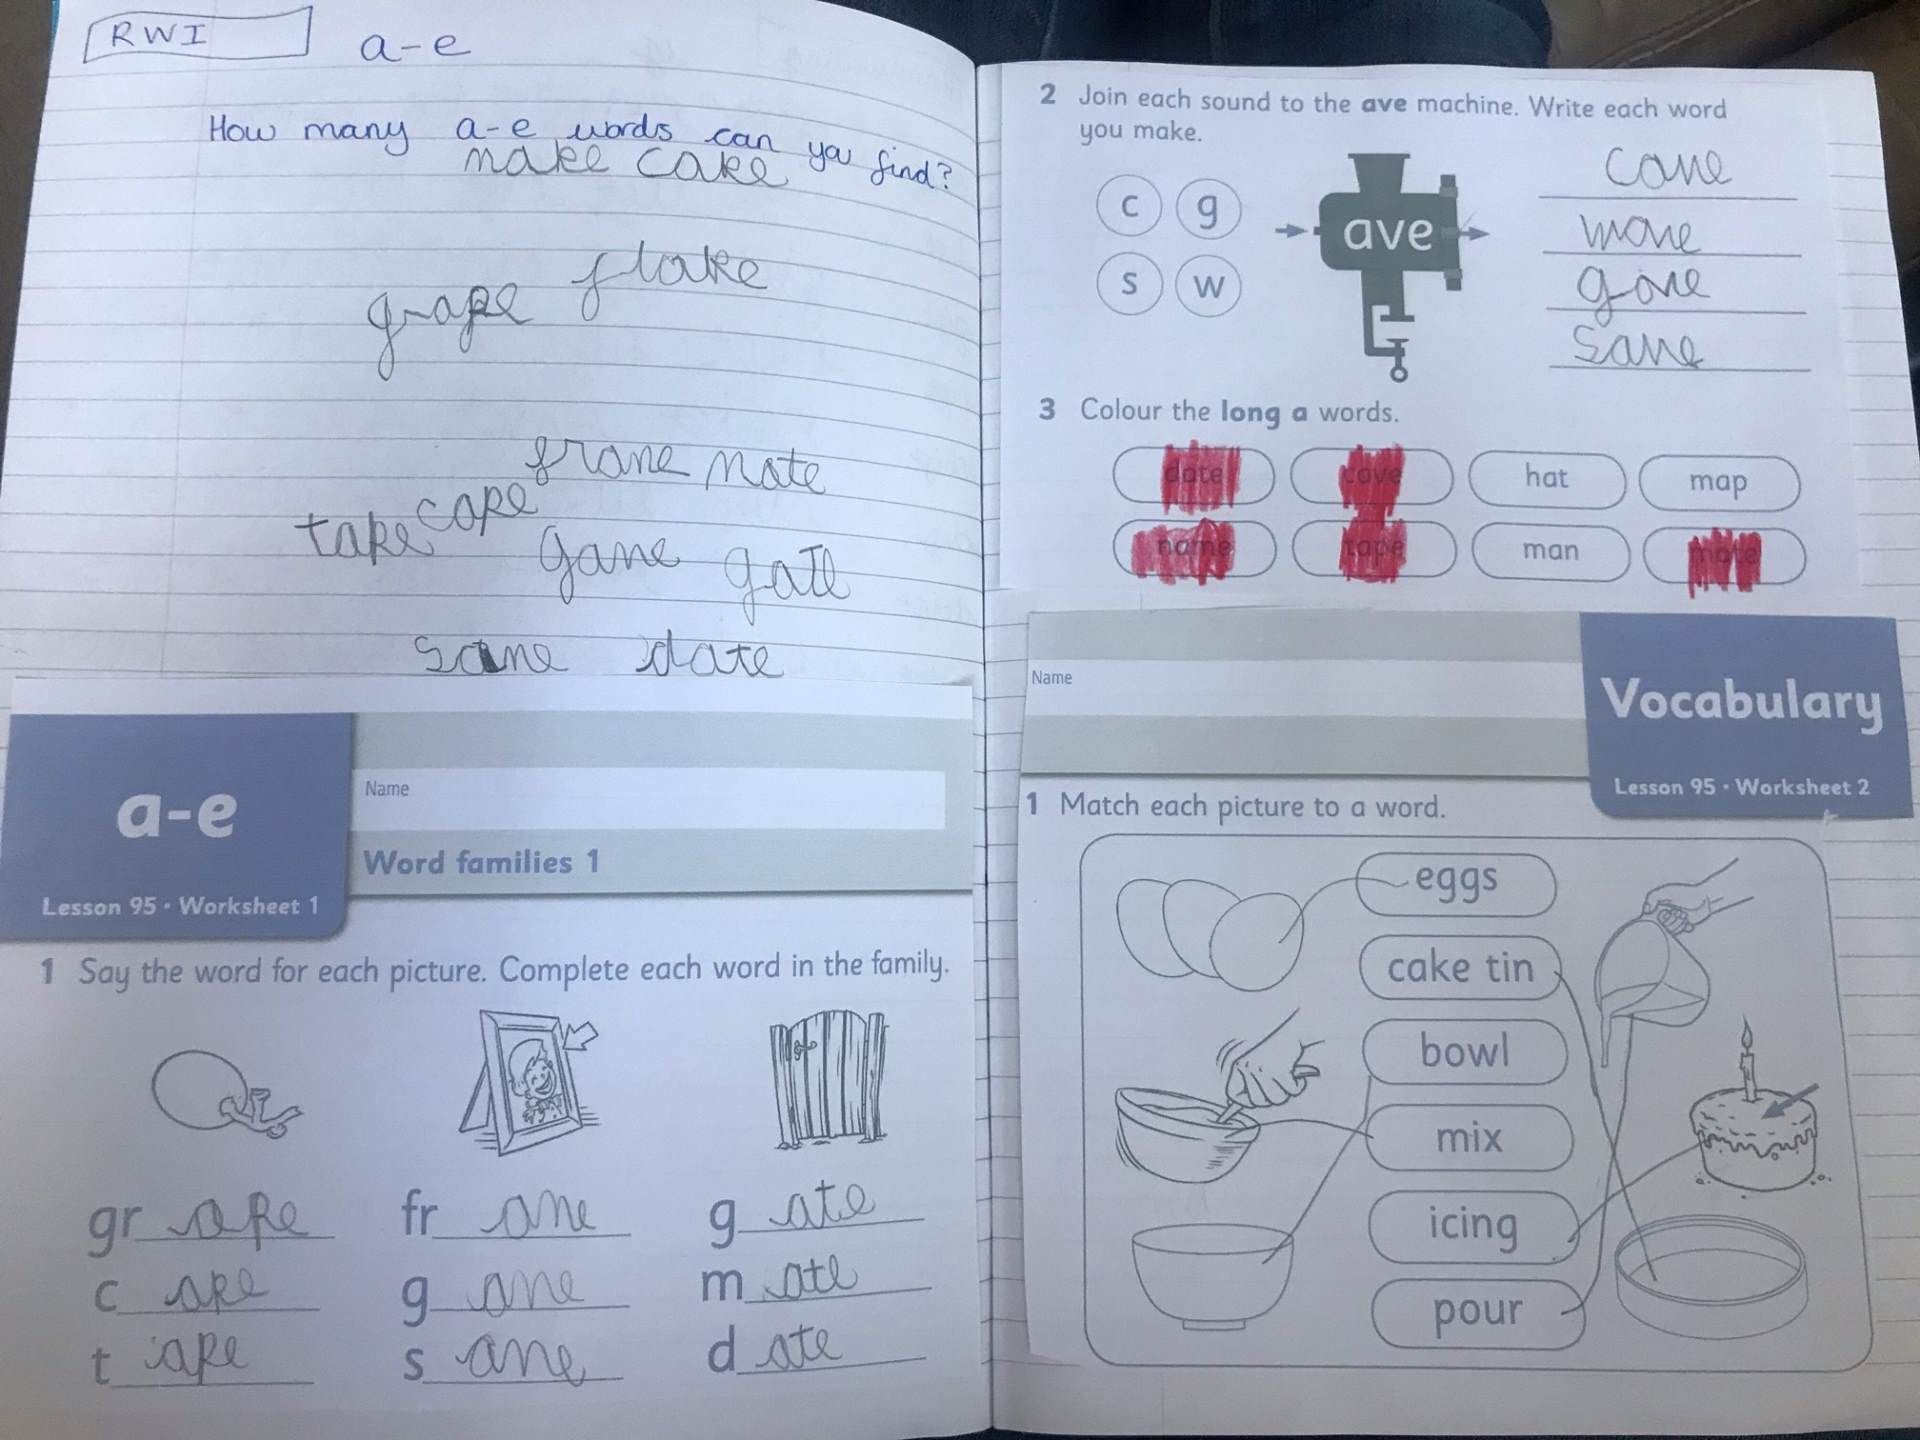 RWI
a-e
How many a-e words can you find?
make cake
flake
grape
frame mate
take cape
game gate
same date
a-e
Name
Word families 1
Lesson 95 • Worksheet 1
1 Say the word for each picture. Complete each word in the family.
gr ape fr ame g ate
c ape g ame m ate
t ape s ame d ate
2 Join each sound to the ave machine. Write each word
you make.
c g
s w
ave
cave
wave
gave
save
3 Colour the long a words.
date cave hat map
name tape man mate
Name
Vocabulary
Lesson 95 • Worksheet 2
1 Match each picture to a word.
eggs
cake tin
bowl
mix
icing
pour